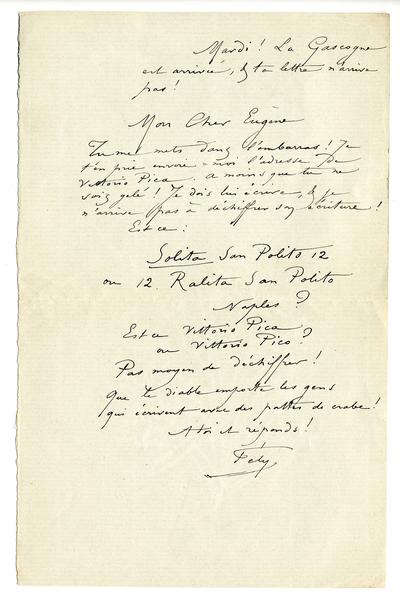 Mardi ! La Gascogne
est arrivée, & ta lettre n'arrive
pas !
Mon Cher Eugène
Tu me mets dans l'embarras ! Je
t'en prie envoie-moi l'adresse de
Vittorio Pica. a moins que tu ne
sois gelé ! Je dois lui écrire, & je
n'arrive pas à déchiffrer son écriture !
Est ce :
Solita San Polito 12
ou 12. Ralita San Polito
Naples ?
Est ce Vittorio Pica
ou Vittorio Pico ?
Pas moyen de déchiffrer !
Que le diable emporte les gens
qui écrivent avec des pattes de crabe !
A toi & réponds !
Fély